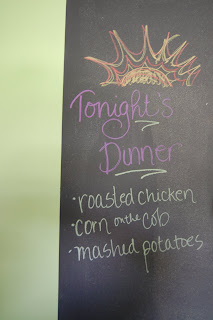 Tonight's
Dinner
·roasted chicken
·corn on the cob
·mashed potatoes